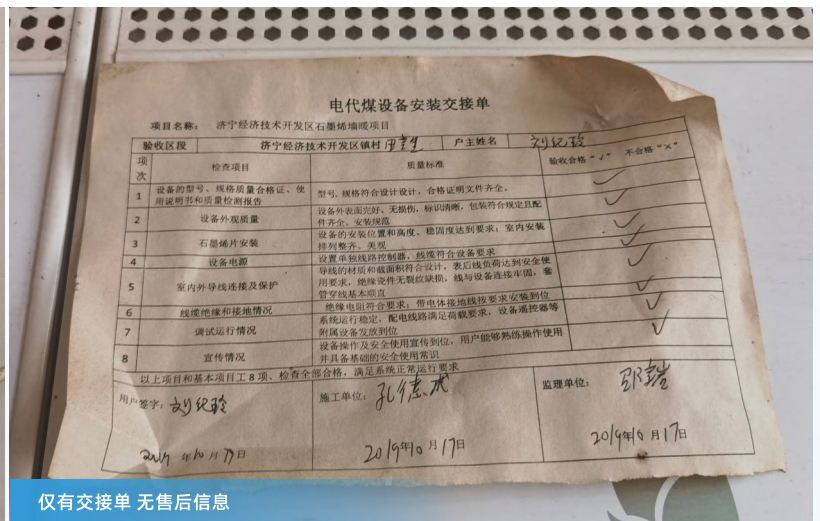 电代煤设备安装交接单
项目名称： 济宁经济技术开发区石墨烯墙暖项目
验收区段 济宁经济技术开发区镇村 户主姓名 刘纪玲
项次 检查项目 质量标准 验收合格“√” 不合格“×”
1 设备的型号、规格质量合格证、使用说明书和质量检测报告 型号、规格符合设计设计，合格证明文件齐全。 √
2 设备外观质量 设备外表面完好、无损伤，标识清晰，包装符合规定且配件齐全、安装规范 √
3 石墨烯片安装 设备的安装位置和高度、稳固度达到要求；室内安装排列整齐、美观 √
4 设备电源 设置单独线路控制器，线缆符合设备要求 √
5 室内外导线连接及保护 导线的材质和截面积符合设计，表后线负荷达到安全使用要求，绝缘瓷件无裂纹缺损，线与设备连接牢固，套管穿线基本顺直 √
6 线缆绝缘和接地情况 绝缘电阻符合要求；带电体接地线按要求安装到位 √
7 调试运行情况 系统运行稳定，配电线路满足荷载要求，设备遥控器等附属设备发放到位 √
8 宣传情况 设备操作及安全使用宣传到位，用户能够熟练操作使用并具备基础的安全使用常识 √
以上项目和基本项目工8项、检查全部合格，满足系统正常运行要求
用户签字：刘纪玲 施工单位： 监理单位：
年10月 日 2019年10月17日 2019年10月17日
仅有交接单 无售后信息